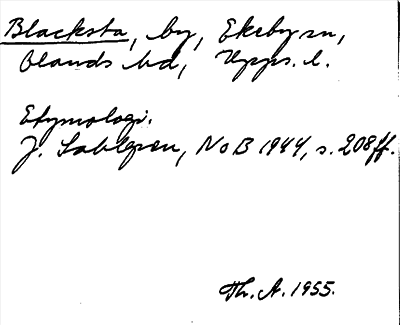 Blacksta, by, Ekeby sn,
Olands hd, Upps. l.
Etymologi.
J. Sahlgren, NoB 1944, s. 208ff.
Th. A. 1955.